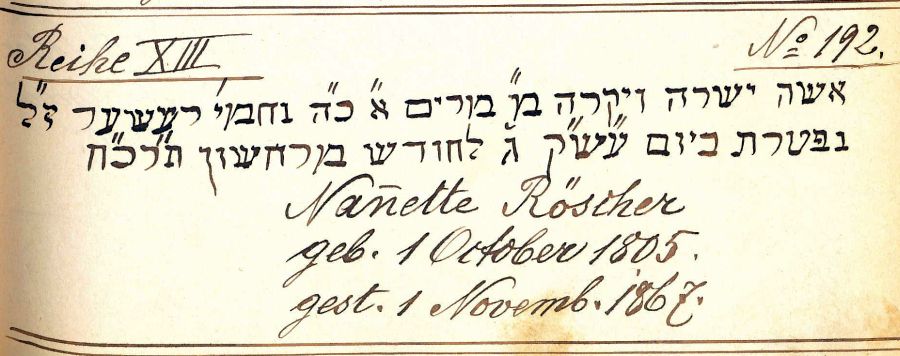 Reihe XIII
No 192.
אשה ישרה ויקרה מ׳ מרים א׳ כ״ה נחמי׳ רעשער ז״ל
נפטרת ביום עש״ק ג׳ לחודש מרחשון תרכ״ח
Nan̄ette Röscher
geb. 1 October 1805.
gest. 1 Novemb. 1867.